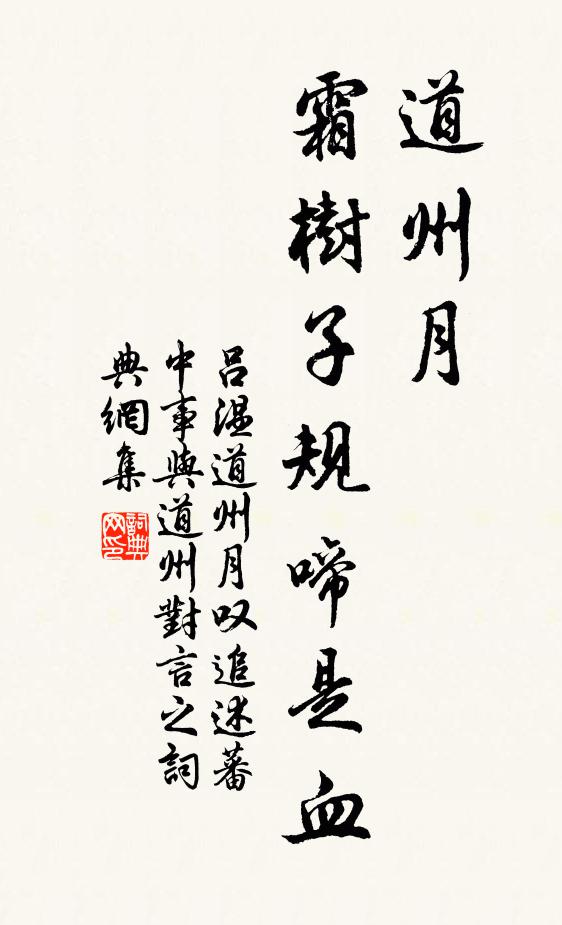 道州月
霜樹子規啼是血
吕溫道州月叹追述蕃
中事與道州對言之詞
典網集
詞典网印